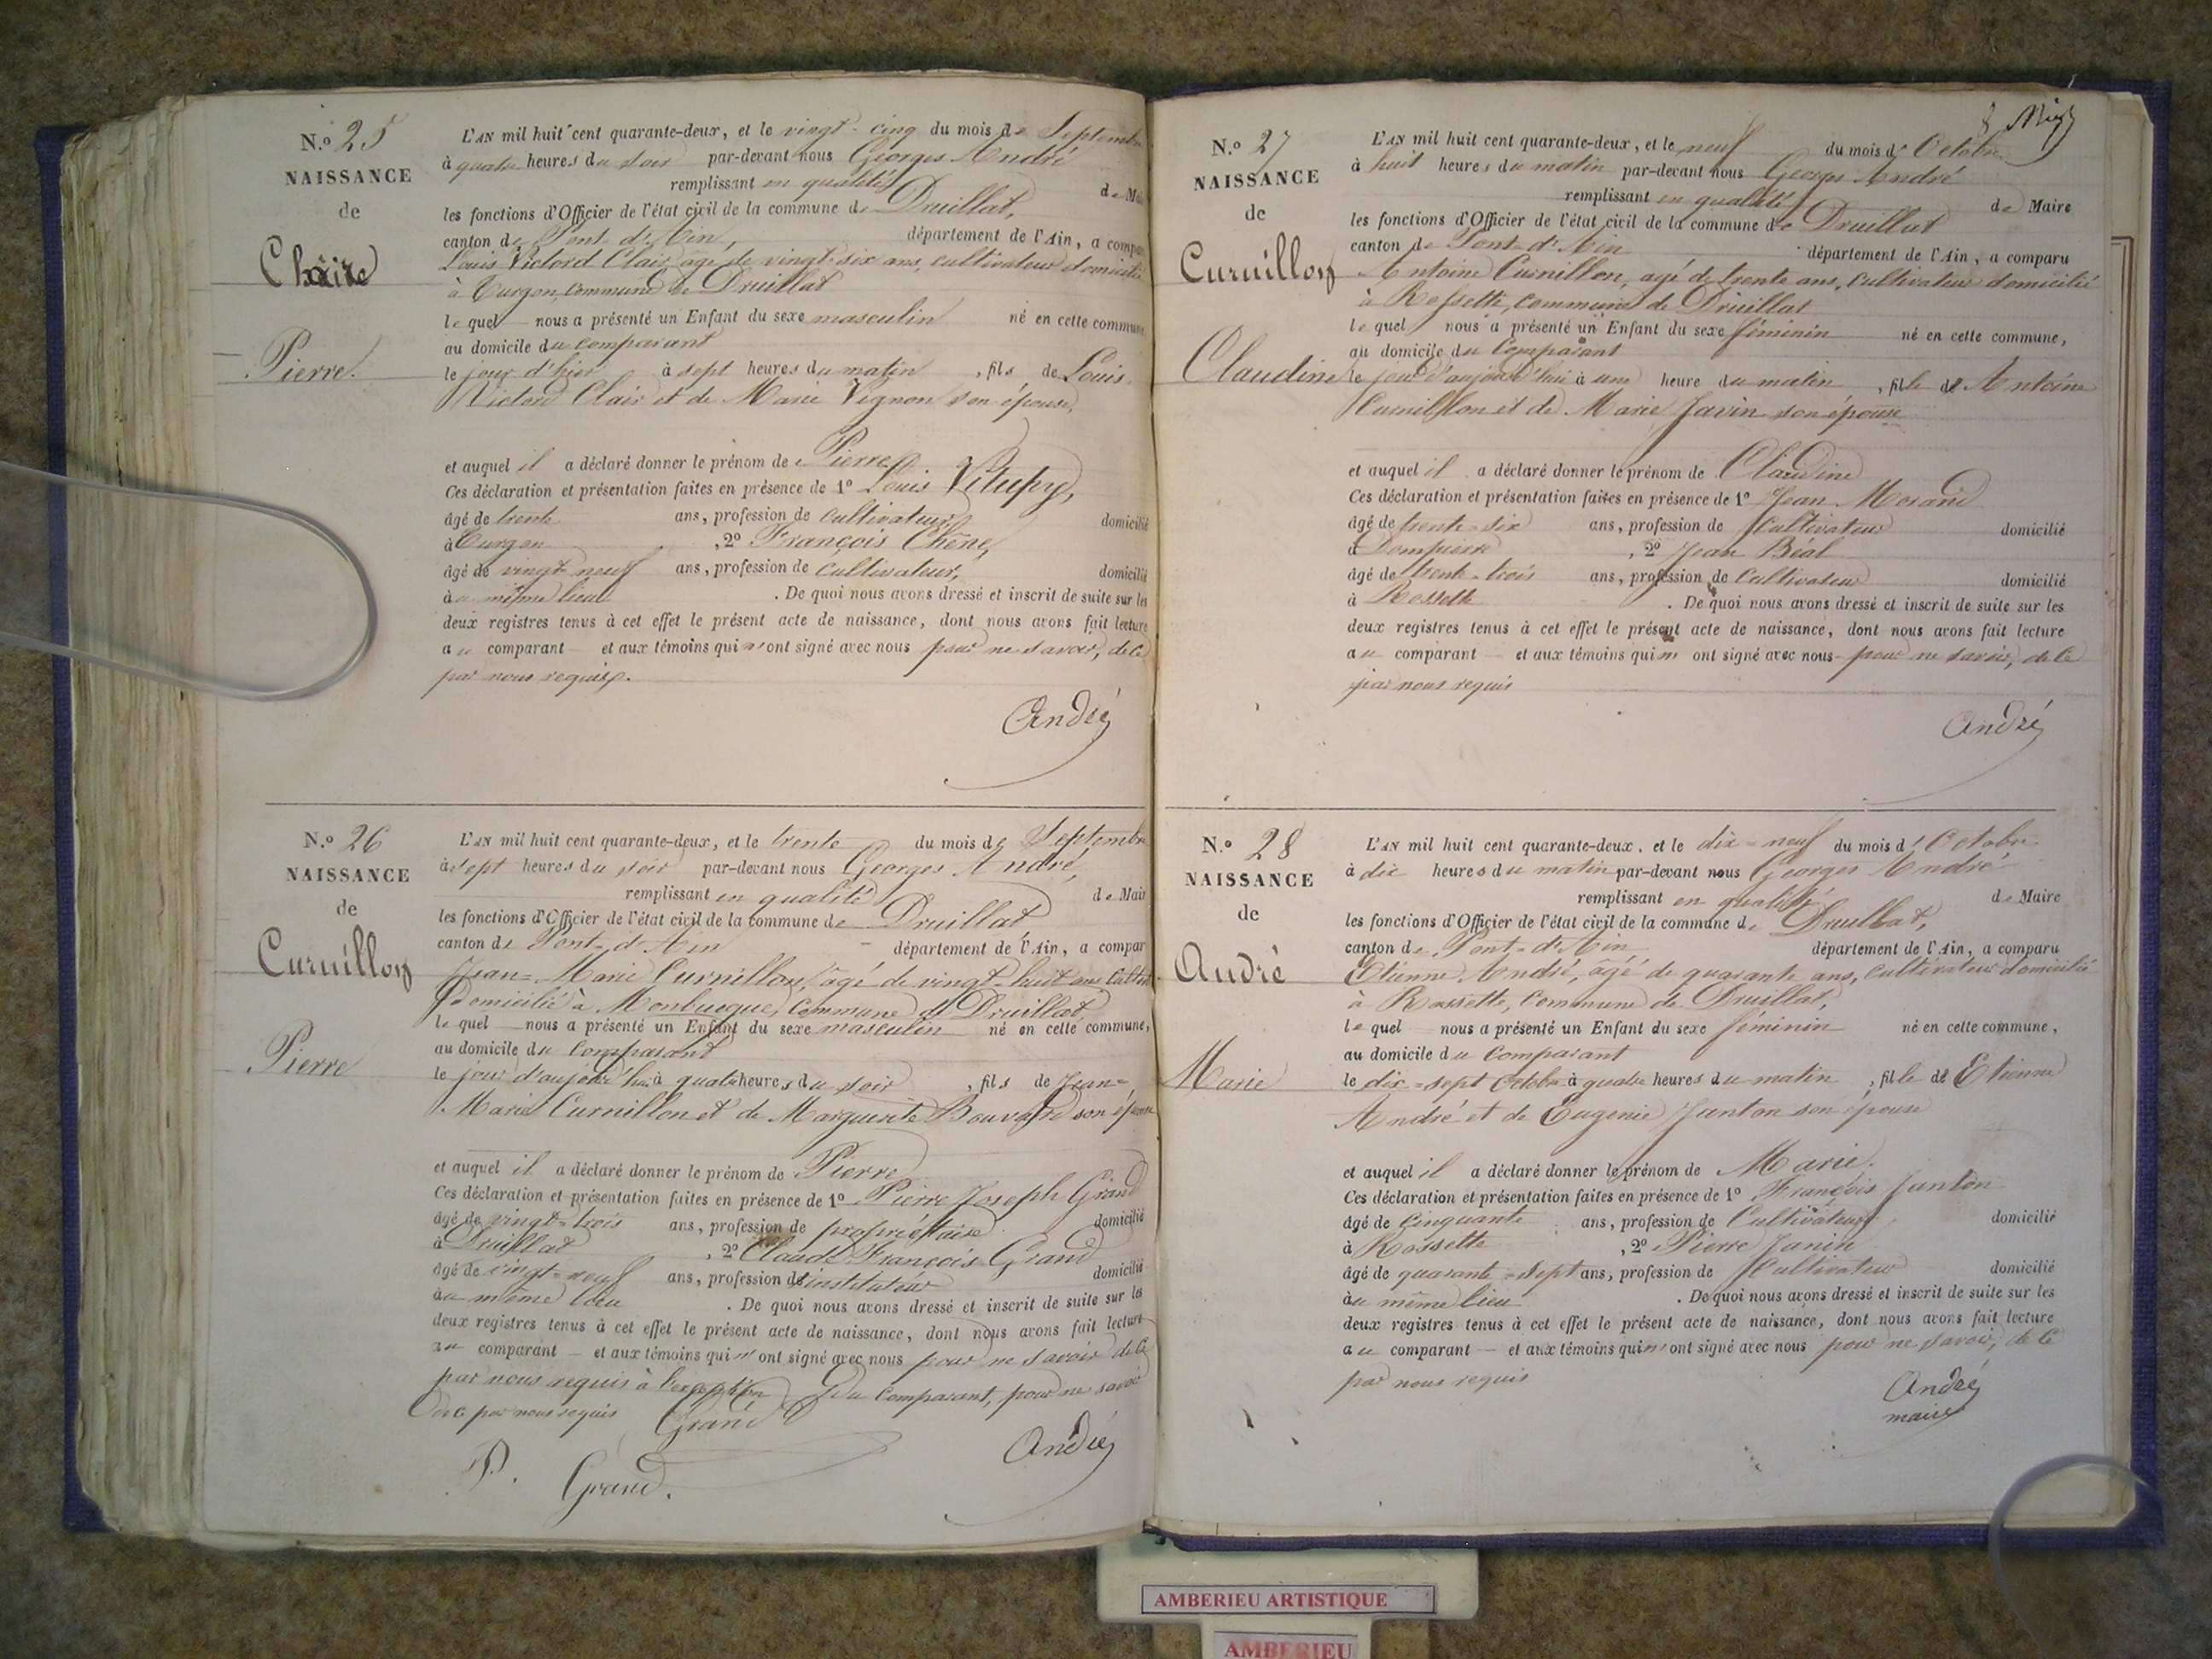 N.o 25
NAISSANCE
de
Claire
Pierre.
L'AN mil huit cent quarante-deux, et le vingt-cinq du mois de Septembre
à quatre heures du soir par-devant nous Georges André
remplissant en qualité de Mai
les fonctions d'Officier de l'état civil de la commune de Druillat,
canton de Pont-d'Ain, département de l'Ain, a compa
Louis Victord Clair, agé de vingt-six ans, cultivateur domicilié
à Turgon, commune de Druillat
lequel nous a présenté un Enfant du sexe masculin né en cette commune
au domicile du comparant
le jour d'hier à sept heures du matin, fils de Louis
Victord Clair et de Marie Vignon son épouse,
et auquel il a déclaré donner le prénom de Pierre
Ces déclaration et présentation faites en présence de 1° Louis Vilupy,
âgé de trente ans, profession de cultivateur domicilié
à Turgon, 2° François Chêne,
âgé de vingt neuf ans, profession de cultivateur, domicilié
au même lieu. De quoi nous avons dressé et inscrit de suite sur les
deux registres tenus à cet effet le présent acte de naissance, dont nous avons fait lecture
au comparant et aux témoins qui n'ont signé avec nous pour ne savoir, de ce
par nous requis.
André
N.o 26
NAISSANCE
de
Curnillon
Pierre
L'AN mil huit cent quarante-deux, et le trente du mois de Septembre
à sept heures du soir par-devant nous Georges André,
remplissant en qualité de Mair
les fonctions d'Officier de l'état civil de la commune de Druillat
canton de Pont-d'Ain département de l'Ain, a compar
Jean-Marie Curnillon, âgé de vingt-huit ans Cultiv
domicilié à Monbuegue, commune de Druillat
lequel nous a présenté un Enfant du sexe masculin né en cette commune,
au domicile du Comparant
le jour d'aujourd'hui à quatre heures du soir, fils de Jean-
Marie Curnillon et de Marguerite Bouvard son épouse
et auquel il a déclaré donner le prénom de Pierre
Ces déclaration et présentation faites en présence de 1° Pierre Joseph Grand
âgé de vingt-trois ans, profession de propriétaire domicilié
à Druillat, 2° Claude François Grand
âgé de vingt-neuf ans, profession de instituteur domicilié
au même lieu. De quoi nous avons dressé et inscrit de suite sur les
deux registres tenus à cet effet le présent acte de naissance, dont nous avons fait lecture
au comparant et aux témoins qui n'ont signé avec nous pour ne savoir de ce
par nous requis à l'exception du Comparant, pour ne savoir
de ce par nous requis Grand
P. Grand. André
8 
N.o 27
NAISSANCE
de
Curnillon
Claudine
L'AN mil huit cent quarante-deux, et le neuf du mois d'Octobre
à huit heures du matin par-devant nous Georges André
remplissant en qualité de Maire
les fonctions d'Officier de l'état civil de la commune de Druillat
canton de Pont-d'Ain département de l'Ain, a comparu
Antoine Curnillon, agé de trente ans, cultivateur domicilié
à Rossette, commune de Druillat
lequel nous a présenté un Enfant du sexe féminin né en cette commune,
au domicile du Comparant
le jour d'aujourd'hui à une heure du matin, fille de Antoine
Curnillon et de Marie Javin son épouse
et auquel il a déclaré donner le prénom de Claudine
Ces déclaration et présentation faites en présence de 1° Jean Morand
âgé de trente-six ans, profession de Cultivateur domicilié
à Dompierre, 2° Jean Béal
âgé de trente-trois ans, profession de Cultivateur domicilié
à Rossette. De quoi nous avons dressé et inscrit de suite sur les
deux registres tenus à cet effet le présent acte de naissance, dont nous avons fait lecture
au comparant et aux témoins qui n'ont signé avec nous pour ne savoir, de ce
par nous requis
André
N.o 28
NAISSANCE
de
André
Marie
L'AN mil huit cent quarante-deux, et le dix-neuf du mois d'Octobre
à dix heures du matin par-devant nous Georges André
remplissant en qualité de Maire
les fonctions d'Officier de l'état civil de la commune de Druillat,
canton de Pont-d'Ain département de l'Ain, a comparu
Etienne André, âgé de quarante ans, cultivateur domicilié
à Rossette, Commune de Druillat,
lequel nous a présenté un Enfant du sexe féminin né en cette commune,
au domicile du Comparant
le dix-sept Octobre à quatre heures du matin, fille de Etienne
André et de Eugenie Janton son épouse
et auquel il a déclaré donner le prénom de Marie.
Ces déclaration et présentation faites en présence de 1° François Janton
âgé de cinquante ans, profession de Cultivateur domicilié
à Rossette, 2° Pierre Janin
âgé de quarante-sept ans, profession de Cultivateur domicilié
au même lieu. De quoi nous avons dressé et inscrit de suite sur les
deux registres tenus à cet effet le présent acte de naissance, dont nous avons fait lecture
au comparant et aux témoins qui n'ont signé avec nous pour ne savoir, de ce
par nous requis
André
maire
AMBERIEU ARTISTIQUE
AMBERIEU